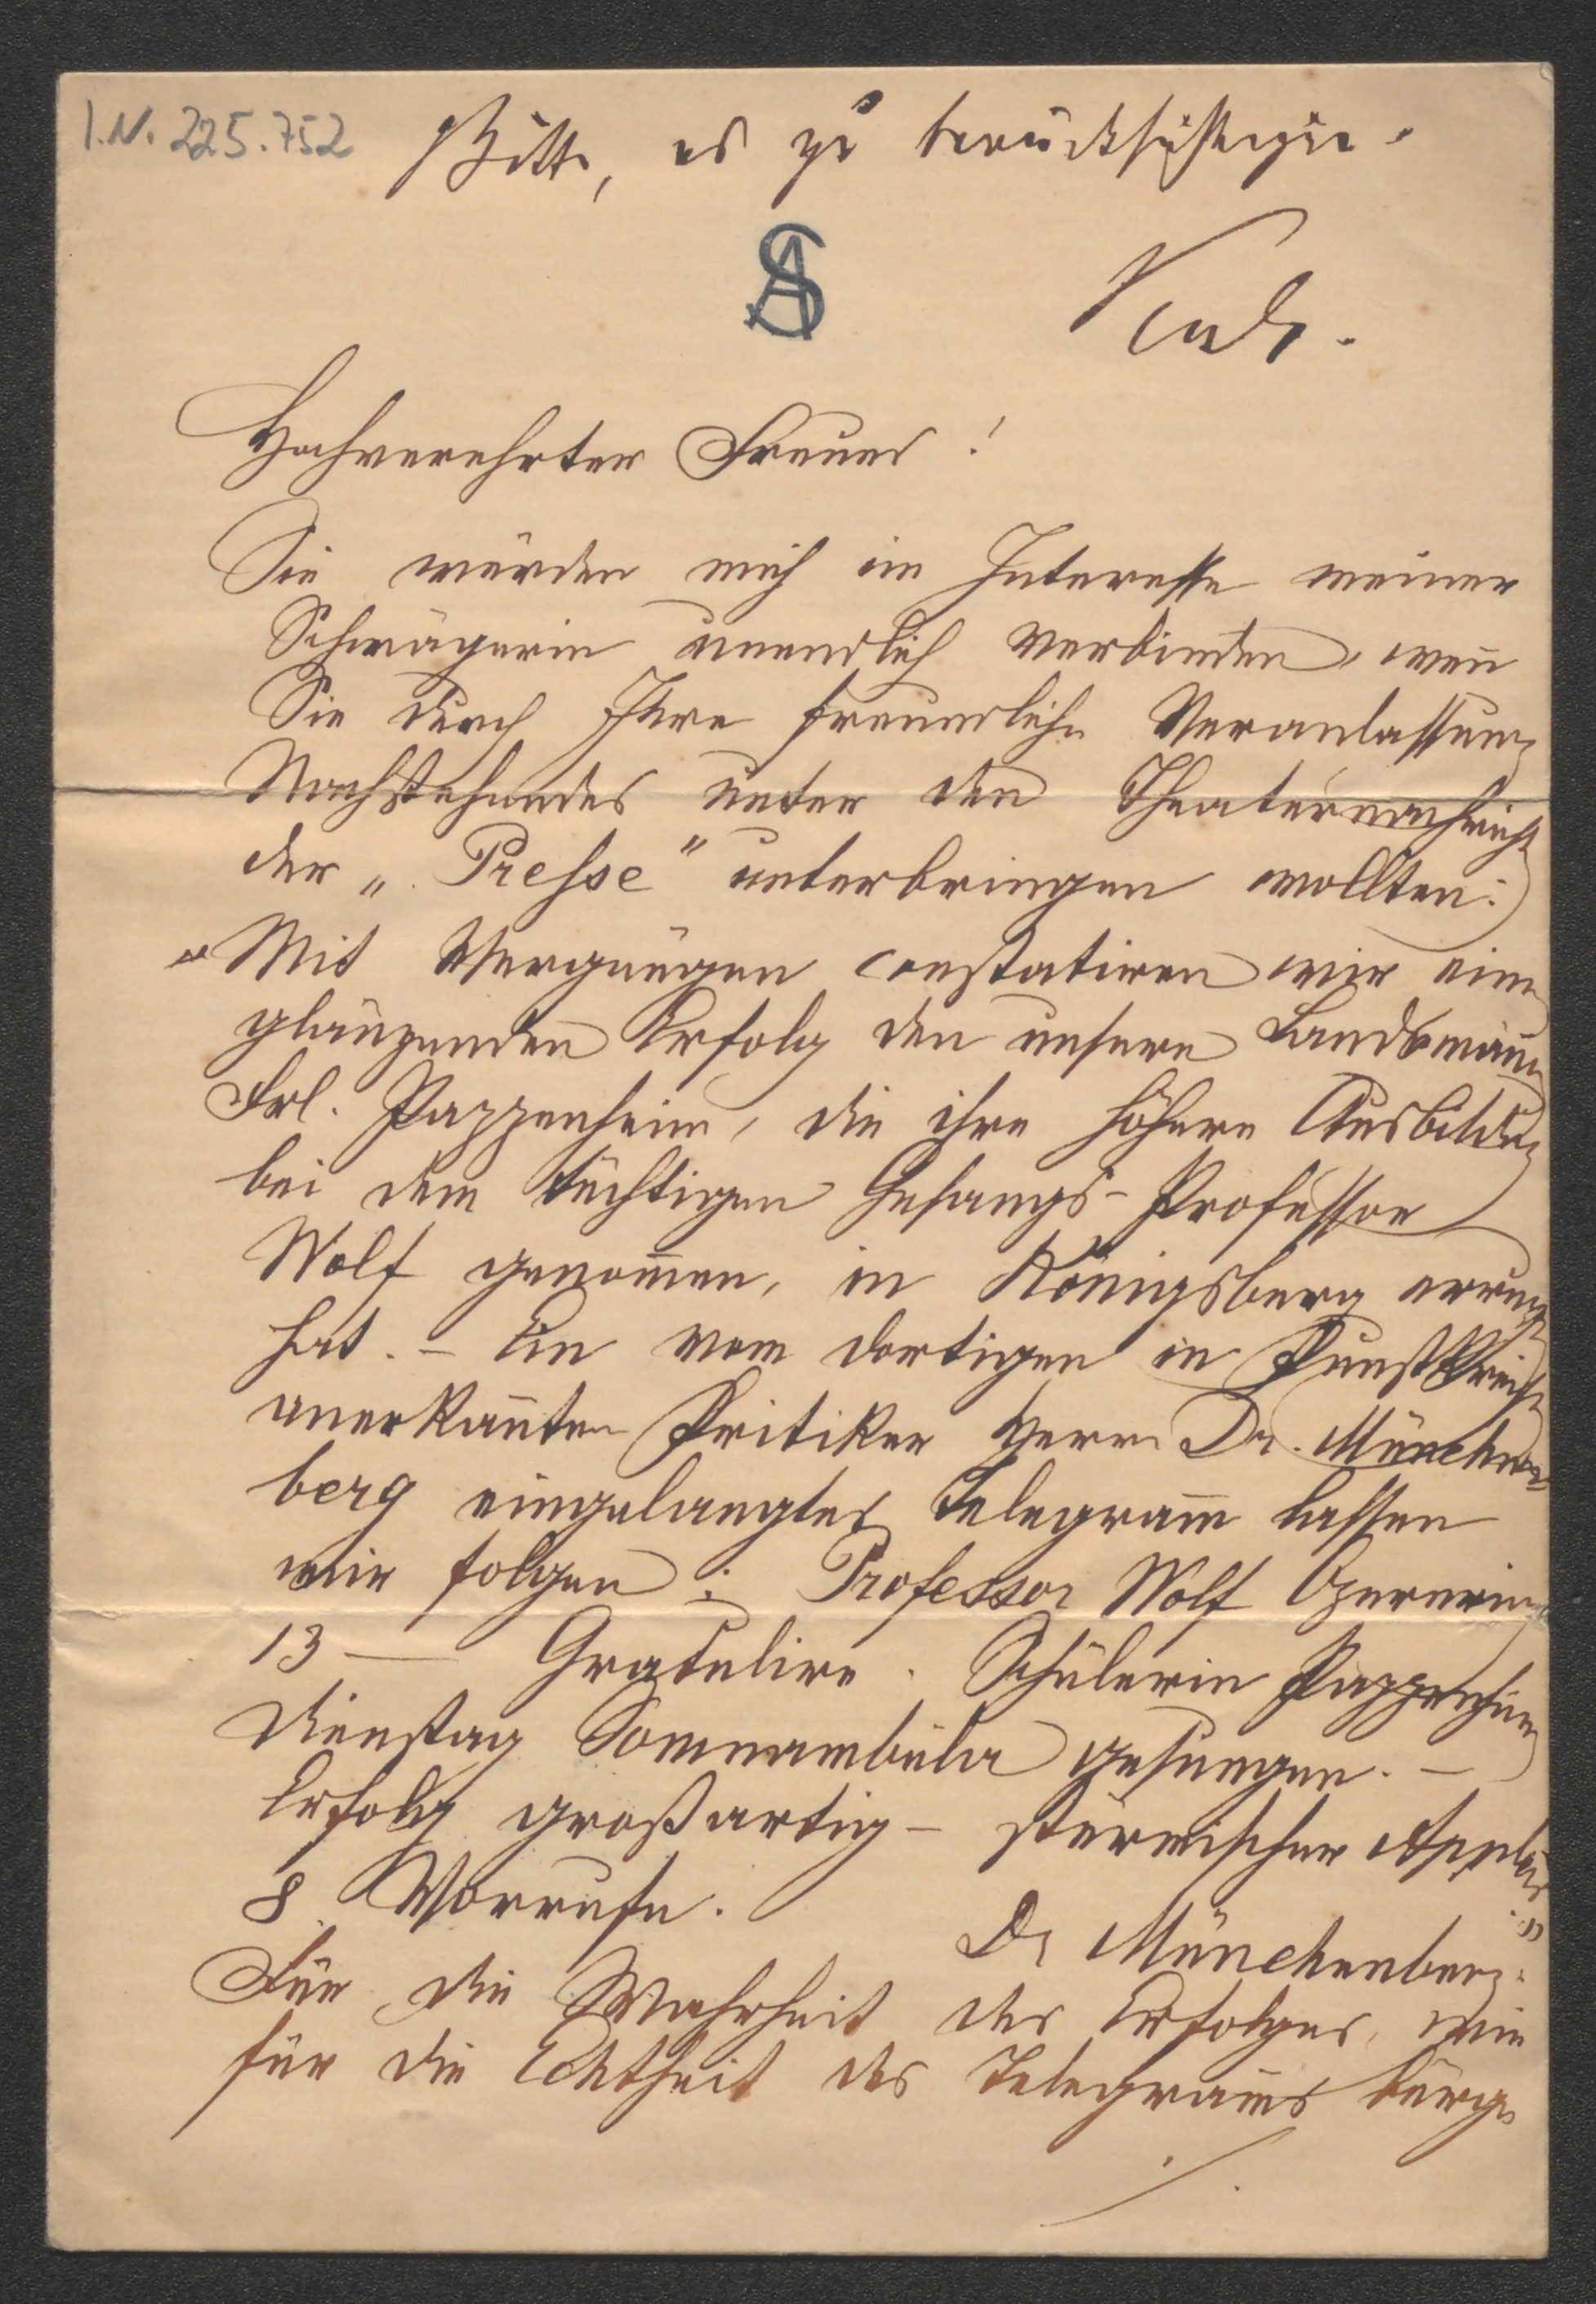 I.N. 225.752
Bitte, es zu berücksichtigen.
Hochverehrter Freund!
Sie würden mich im Interesse meiner
Schwägerin unendlich verbinden, wen̄
Sie durch Ihre freundliche Veranlassung
Nachstehendes unter den Theaternachricht
der „Presse“ unterbringen wollten:
„Mit Vergnügen constatiren wir einen
glänzenden Erfolg den unsere Landsmänn
Frl. Pappenheim, die ihre höhere Ausbildung
bei dem tüchtigen Gesangs-Professor
Wolf genom̄en, in Königsberg errung
hat. – Ein vom dortigen in
anerkan̄ten Kritiker Herrn Dr. München
berg eingelangtes Telegram̄ lassen
wir folgen: Professor Wolf Opernring
13 — Gratulire. Schülerin Pappenheim
Dienstag Somnambula gesungen. –
Erfolg großartig – stürmischer Applaus
8 Vorrufe.
Dr Münchenberg.“
Für die Wahrheit des Erfolges, wie
für die Echtheit des Telegram̄s bürge
./.